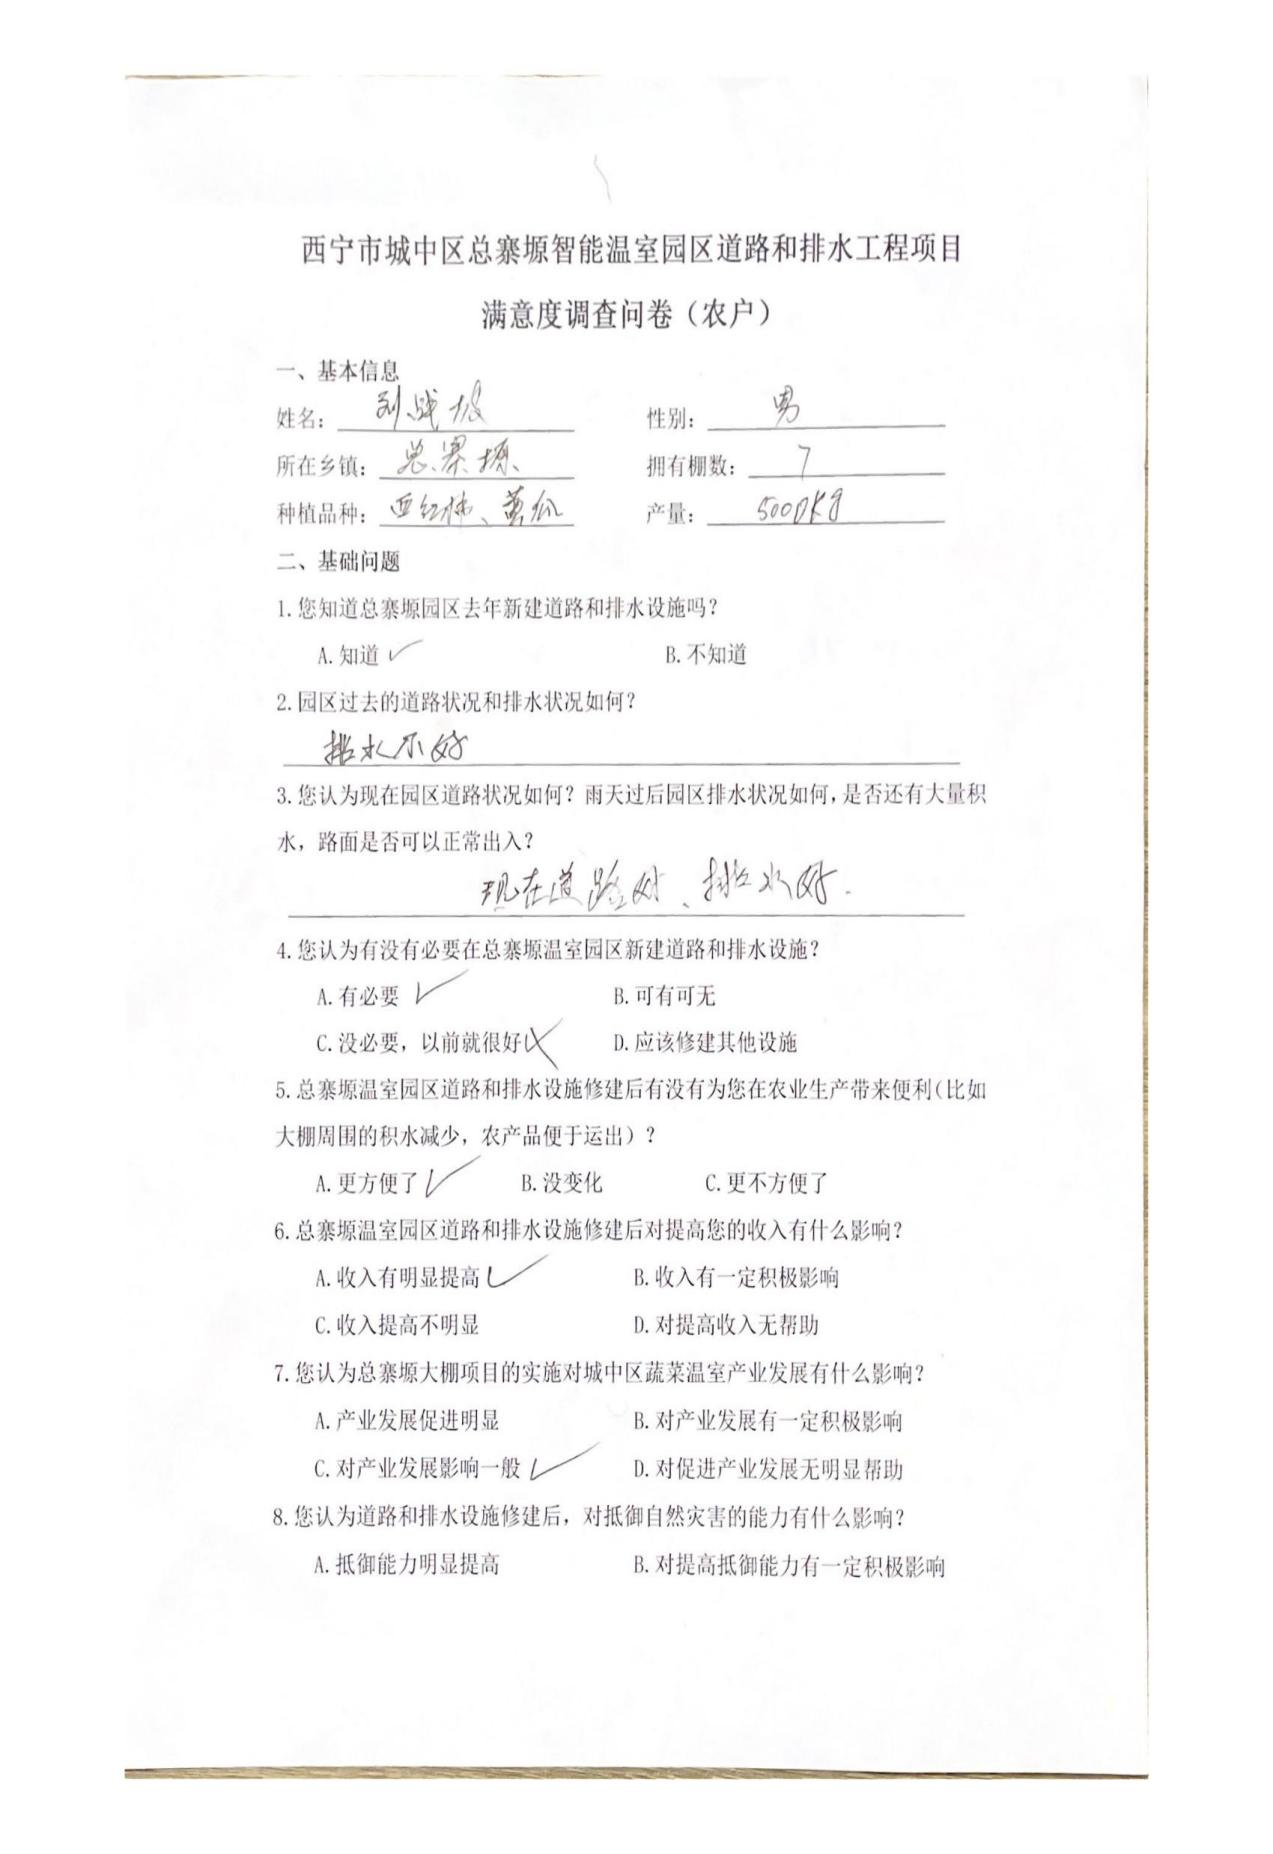 西宁市城中区总寨塬智能温室园区道路和排水工程项目
满意度调查问卷（农户）
一、基本信息
姓名： 刘战坡 性别： 男
所在乡镇： 总寨塬 拥有棚数： 7
种植品种： 西红柿、黄瓜 产量： 5000kg
二、基础问题
1.您知道总寨塬园区去年新建道路和排水设施吗？
A.知道✓ B.不知道
2.园区过去的道路状况和排水状况如何？
排水不好
3.您认为现在园区道路状况如何？雨天过后园区排水状况如何，是否还有大量积
水，路面是否可以正常出入？
现在道路好、排水好.
4.您认为有没有必要在总寨塬温室园区新建道路和排水设施？
A.有必要 ✓ B.可有可无
C.没必要，以前就很好 D.应该修建其他设施
5.总寨塬温室园区道路和排水设施修建后有没有为您在农业生产带来便利（比如
大棚周围的积水减少，农产品便于运出）？
A.更方便了✓ B.没变化 C.更不方便了
6.总寨塬温室园区道路和排水设施修建后对提高您的收入有什么影响？
A.收入有明显提高✓ B.收入有一定积极影响
C.收入提高不明显 D.对提高收入无帮助
7.您认为总寨塬大棚项目的实施对城中区蔬菜温室产业发展有什么影响？
A.产业发展促进明显 B.对产业发展有一定积极影响
C.对产业发展影响一般✓ D.对促进产业发展无明显帮助
8.您认为道路和排水设施修建后，对抵御自然灾害的能力有什么影响？
A.抵御能力明显提高 B.对提高抵御能力有一定积极影响